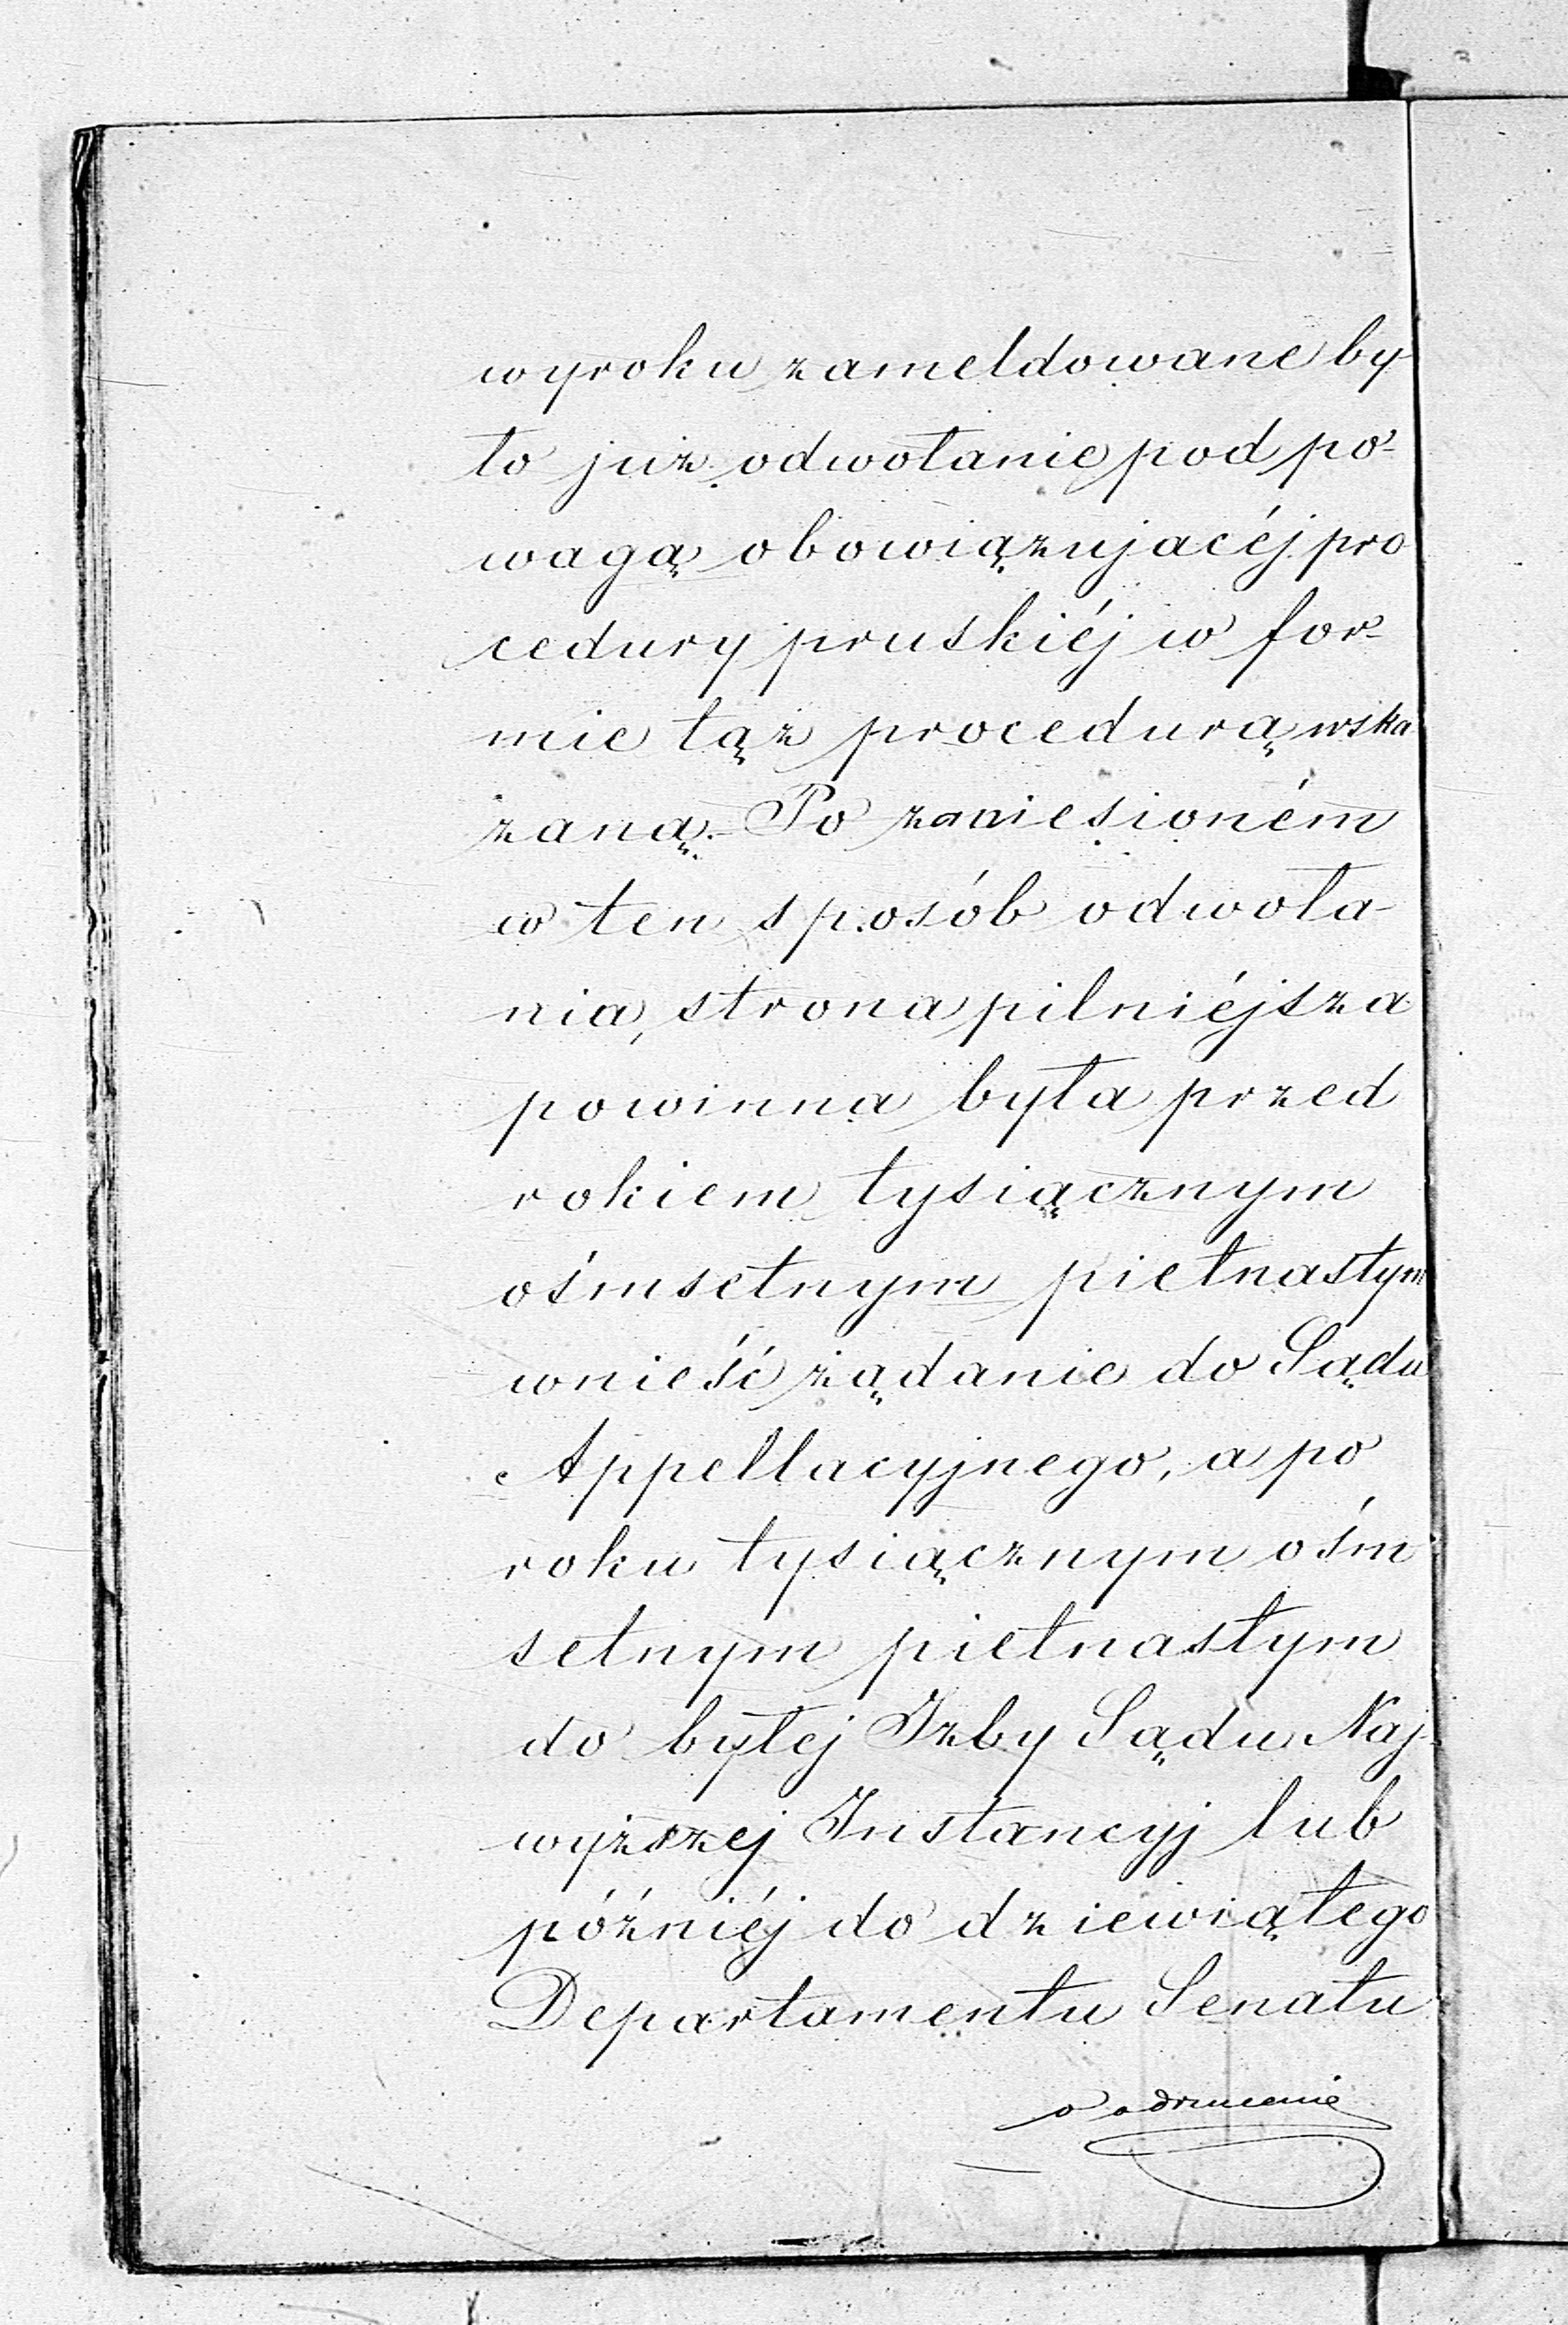 wyroku zameldowane by
ło już odwołanie pod po-
wagą obowiązujacéj pro
cedury pruskiéj w for-
mie tąż procedurą wska
zaną.- Po zaniesioném
w ten sposób odwoła-
nia, strona pilniéjsza
powinna była przed
rokiem tysiącznym
ośmsetnym pietnastym
wnieść żądanie do Sądu
Appellacyjnego, a po
roku tysiącznym ośm
setnym pietnastym
do byłej Izby Sądu Naj-
wyższej Instancyj lub
późniéj do dziewiątego
Departamentu Senatu
o odrzucenie